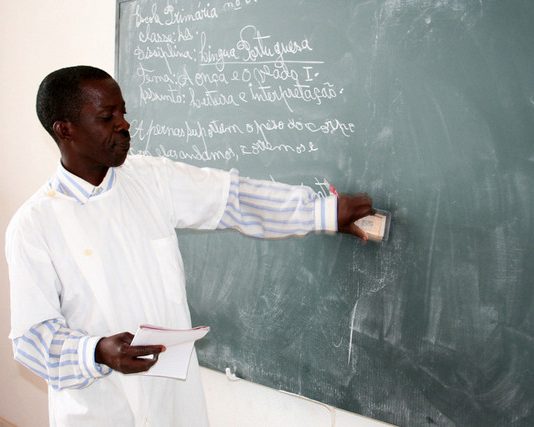 Escola Primária no
classe:
Disciplina: Língua Portuguesa
Tema: A onça e o veado I-
Assunto: leitura e interpretação.
A pernas suportam o peso do corpo
andamos, corremos e